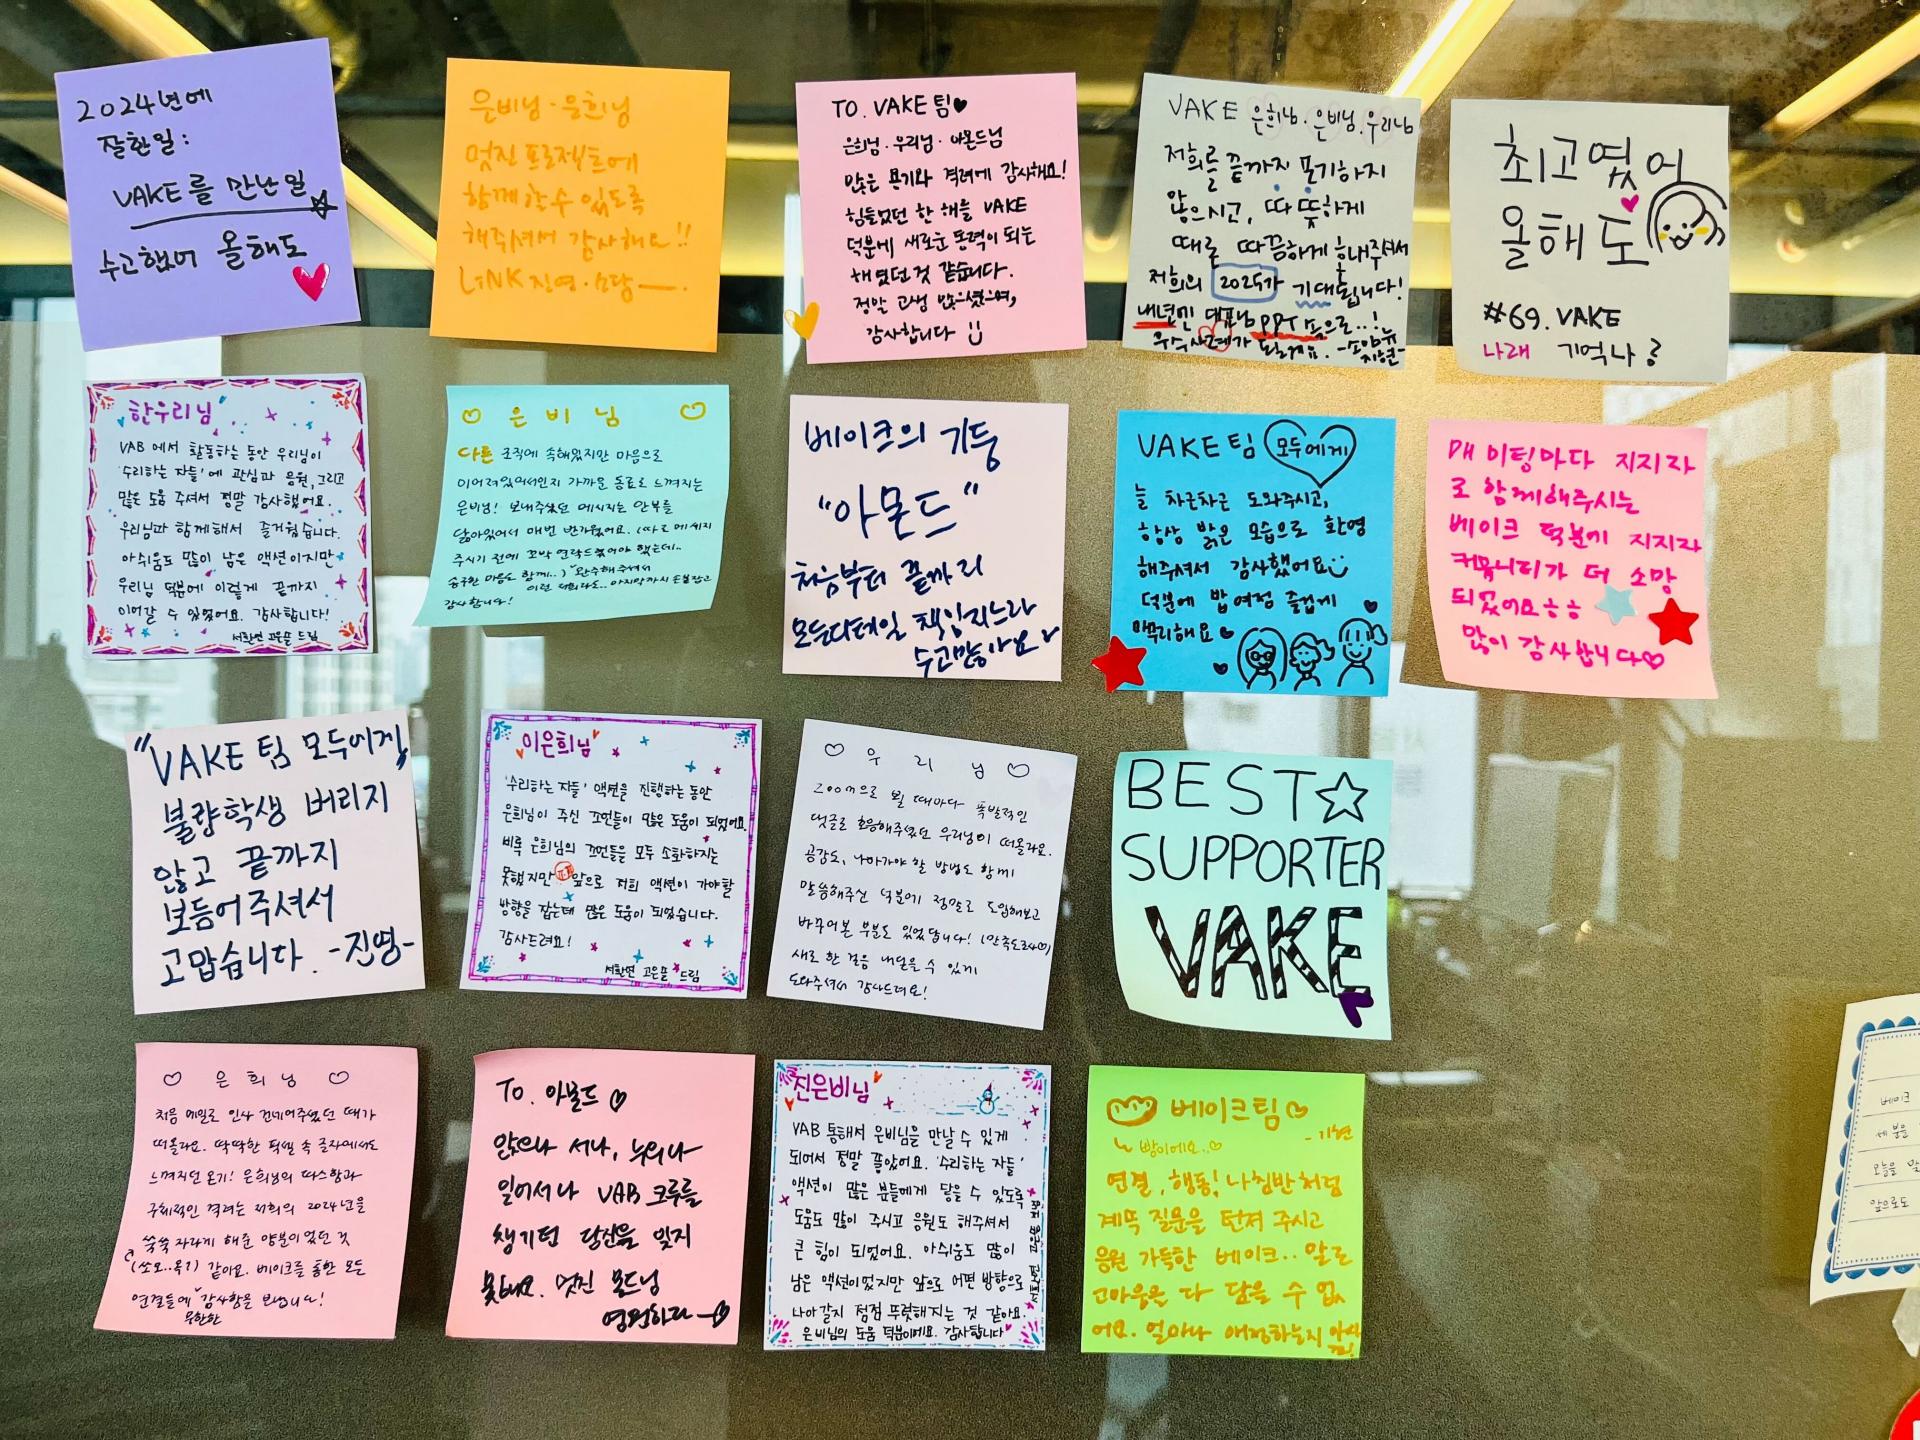 2024년에
잘한일:
VAKE를 만난일
수고했어 올해도
은비님·은희님
멋진 프로젝트에
함께할 수 있도록
해주셔서 감사해요!!
LINK 진연·소담
TO. VAKE팀♥
은희님·우리님·아몬드님
많은 온기와 격려에 감사해요!
힘들었던 한 해를 VAKE
덕분에 새로운 동력이 되는
해였던 것 같습니다.
정말 고생 많으셨으며,
감사합니다
VAKE 은희님·은비님·우리님
저희를 끝까지 포기하지
않으시고, 따뜻하게
때로 따끔하게 혼내주셔서
저희의 2025가 기대됩니다!
내년엔 대표님 PPT 속으로..!
우수사례가 될게요.
최고였어
올해도
#69. VAKE
나래 기억나?
한우리님
VAB 에서 활동하는 동안 우리님이
'수리하는 자들'에 관심과 응원, 그리고
많은 도움 주셔서 정말 감사했어요.
우리님과 함께해서 즐거웠습니다.
아쉬움도 많이 남은 액션이지만
우리님 덕분에 이렇게 끝까지
이어갈 수 있었어요. 감사합니다!
서화연 고은솔 드림
♡ 은비님 ♡
다른 조직에 속해있지만 마음으로
이어져있어서인지 가까운 동료로 느껴지는
은비님! 보내주셨던 메시지는 안부를
닮아있어서 매번 반가웠어요. (따로 메세지
주시기 전에 꼬박 연락드렸어야 했는데..
송구한 마음도 함께..) 완주해주셔서
이런 저희라도.. 마지막까지 손붙잡고
감사합니다!
베이크의 기둥
"아몬드"
처음부터 끝까지
모든디테일 책임지느라
수고많아요
VAKE팀 모두에게
늘 차근차근 도와주시고,
항상 밝은 모습으로 환영
해주셔서 감사했어요
덕분에 밥여정 즐겁게
마무리해요
매 미팅마다 지지자
로 함께해주시는
베이크 덕분에 지지자
커뮤니티가 더 소망
되었어요ㅎㅎ
많이 감사합니다♡
"VAKE팀 모두에게"
불량학생 버리지
않고 끝까지
보듬어주셔서
고맙습니다. -진영-
이은희님
'수리하는 자들' 액션을 진행하는 동안
은희님이 주신 꼬먼들이 많은 도움이 되었어요.
비록 은희님의 꼬먼들을 모두 소화하지는
못했지만 앞으로 저희 액션이 가야할
방향을 잡는데 많은 도움이 되었습니다.
감사드려요!
서화연 고은솔 드림
♡ 우리님 ♡
zoom으로 뵐 때마다 폭발적인
댓글로 호응해주셨던 우리님이 떠올라요.
공감도, 나아가야 할 방법도 함께
말씀해주신 덕분에 정말로 도입해보고
바꾸어본 부분도 있었답니다!
새로 한 걸음 내딛을 수 있게
도와주셔서 감사드려요!
BEST
SUPPORTER
VAKE
♡ 은희님 ♡
처음 메일로 인사 건네어주셨던 때가
떠올라요. 딱딱한 픽셀 속 글자에서도
느껴지던 온기! 은희님의 따스함과
구체적인 격려는 저희의 2024년을
쑥쑥 자라게 해준 양분이었던 것
같아요. 베이크를 통한 모든
연결들에 무한한 감사함을 보냅니다!
To. 아몬드♡
앉으나 서나, 누우나
일어서나 VAB 크루를
챙기던 당신을 잊지
못해요. 멋진 몬드님
영원하라
진은비님
VAB 통해서 은비님을 만날 수 있게
되어서 정말 좋았어요. '수리하는 자들'
액션이 많은 분들에게 닿을 수 있도록
도움도 많이 주시고 응원도 해주셔서
큰 힘이 되었어요. 아쉬움도 많이
남은 액션이었지만 앞으로 어떤 방향으로
나아갈지 점점 뚜렷해지는 것 같아요.
은비님의 도움 덕분이에요. 감사합니다
베이크팀♡
-기현
빵이에요..♡
연결, 행동! 나침반처럼
계속 질문을 던져 주시고
응원 가득한 베이크.. 말로
고마움을 다 담을 수 없
어요. 얼마나 애정하는지 아실
베이크
세 분을
앞으로도